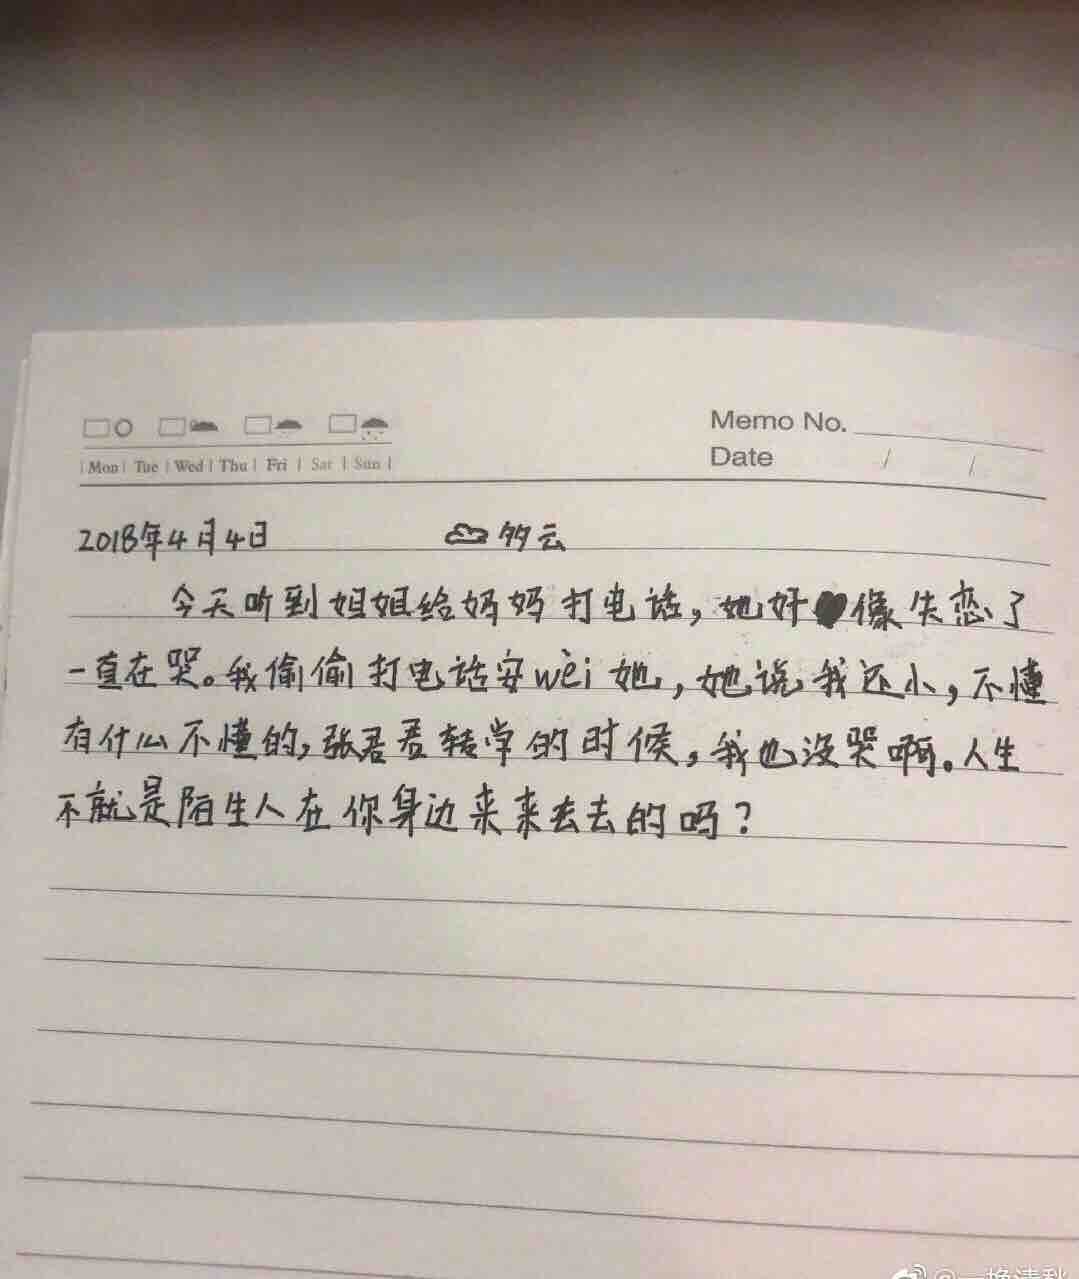 Memo No.
Mon Tue Wed Thu Fri Sat Sun
Date / /
2018年4月4日 多云
今天听到姐姐给妈妈打电话，她好像失恋了
一直在哭。我偷偷打电话安wèi她，她说我还小，不懂
有什么不懂的，张君君转学的时候，我也没哭啊。人生
不就是陌生人在你身边来来去去的吗？